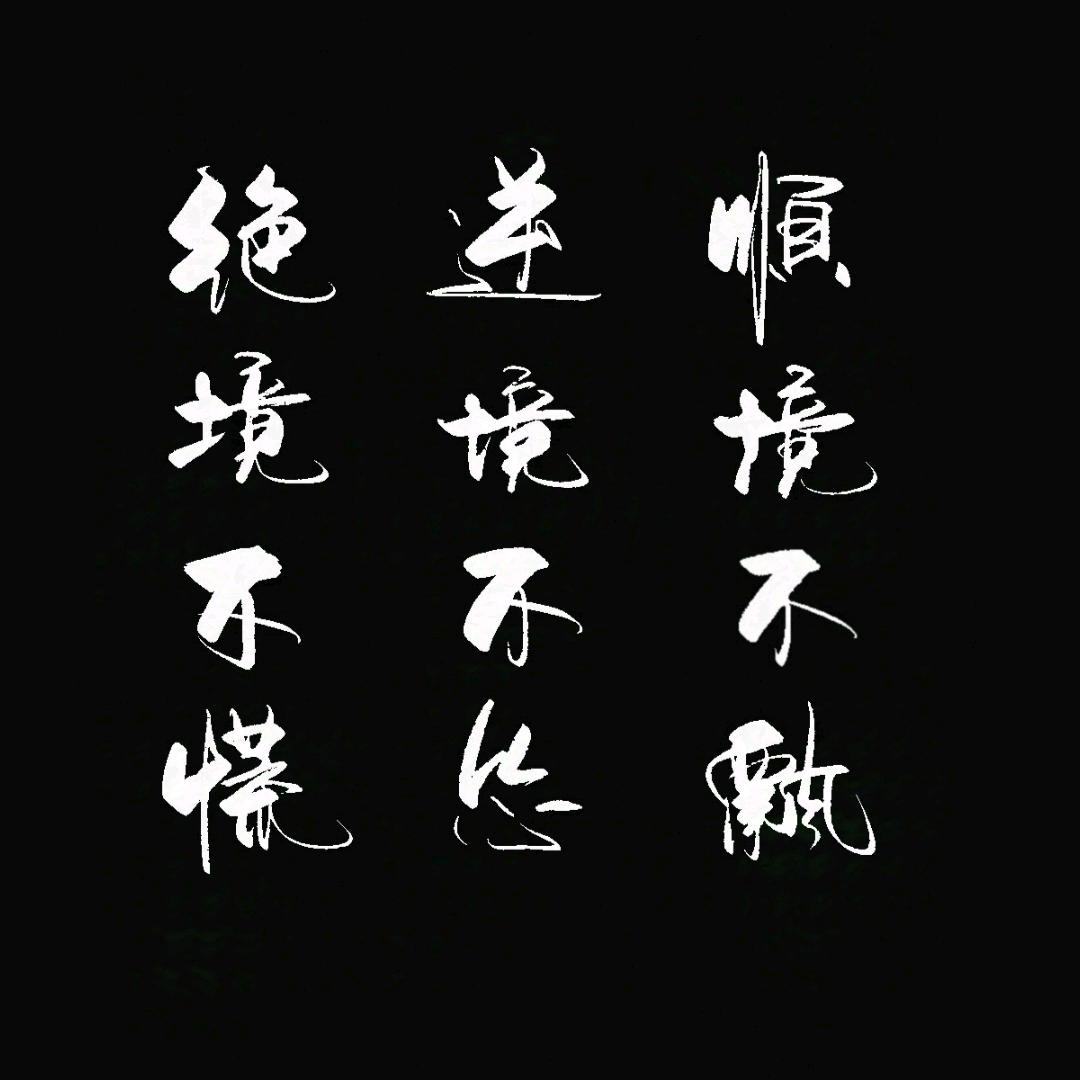 順境不飄
逆境不怂
绝境不慌